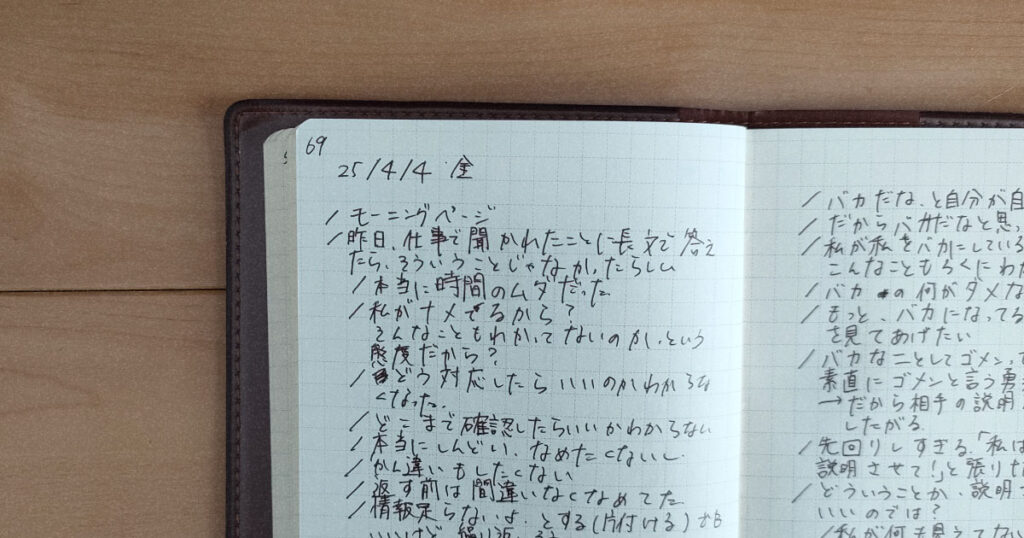 69
25/4/4 金
/モーニングページ
/昨日、仕事で聞かれたことに長文で答え
たら、そういうことじゃなかったらしい
/本当に時間のムダだった
/私がナメてるから?
そんなこともわかってないのか、という
態度だから?
/どう対応したらいいのかわからな
くなった.
/どこまで確認したらいいかわからない
/本当にしんどい、なめたくないし.
/かん違いもしたくない
/返す前は間違いなくなめてた
/情報足らないよ、とする(片付ける)かも
いいけど
/バカだな、と自分が自
/だからバカだなと思っ
/私が私をバカにしている
こんなこともろくにわか
/バカの何がダメな
/もっと、バカになってる
を見てあげたい
/バカなことしてゴメンって
素直にゴメンと言う勇
→だから相手の説明
したがる.
/先回りしすぎる「私は
説明させて!」と張りな
/どういうことか、説明
いいのでは?
/私が何も見えてない